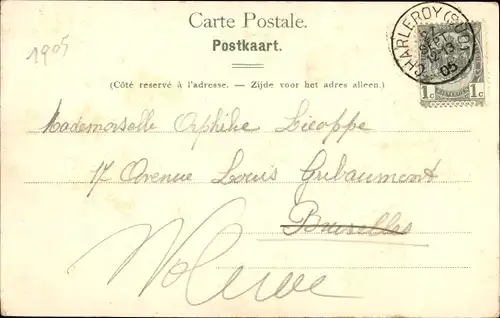 Carte Postale.
Postkaart.
1905
CHARLEROY (SUD)
27 SEPT 12-13 05
1c 1c
(Côté reservé à l'adresse. — Zijde voor het adres alleen.)
Mademoiselle Orphilie Licoppe
17 Avenue Louis Gribaumont
Bruxelles
Woluwe